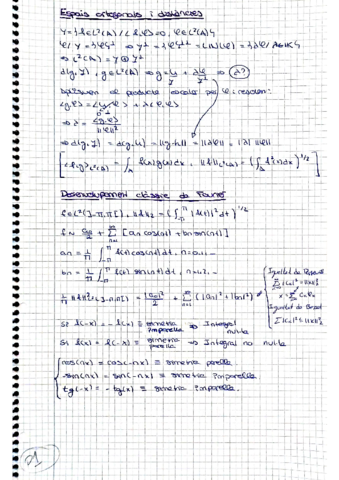 Espais ortogonals i distàncies
Y = {f ∈ L²(A) / <f,φ> = 0, φ ∈ L²(A)}
Y = {φ}⊥ ⇒ Y⊥ = {φ}⊥⊥ = LIN{φ} = {λφ / λ∈K}
⇒ L²(A) = Y ⊕ Y⊥
d(g,Y), g ∈ L²(A) ⇒ g = y + λφ ⇒ λ?
producte escalar per φ i
<g,φ> = <y,φ> + λ<φ,φ>
⇒ λ = <g,φ> / ||φ||²
⇒ d(g,Y) = d(g,y) = ||g-y|| = ||λφ|| = |λ| ||φ||
[<f,g>L²(A) = ∫A f(x)g(x)dx, ||f||L²(A) = (∫A f²(x)dx)^1/2]
Desenvolupament clàssic de Fourier
f ∈ L²(]-π,π[), ||f||₂ = (∫-π^π |f(t)|² dt)^1/2
f ~ a₀/2 + Σ n=1 ∞ [an cos(nt) + bn sin(nt)]
an = 1/π ∫-π^π f(t) cos(nt) dt, n=0,1...
bn = 1/π ∫-π^π f(t) sin(nt) dt, n=1,2...
1/π ||f||²L²(]-π,π[) = |a₀|²/2 + Σ n=1 ∞ (|an|² + |bn|²)
Igualtat de Parseval
Si f(-x) = -f(x) ≡ simetria imparella ⇒ Integral nul·la
Si f(x) = f(-x) ≡ simetria parella ⇒ Integral no nul·la
cos(nx) = cos(-nx) ≡ simetria parella
-sin(nx) = sin(-nx) ≡ simetria imparella
tg(-x) = -tg(x) ≡ simetria imparella
21